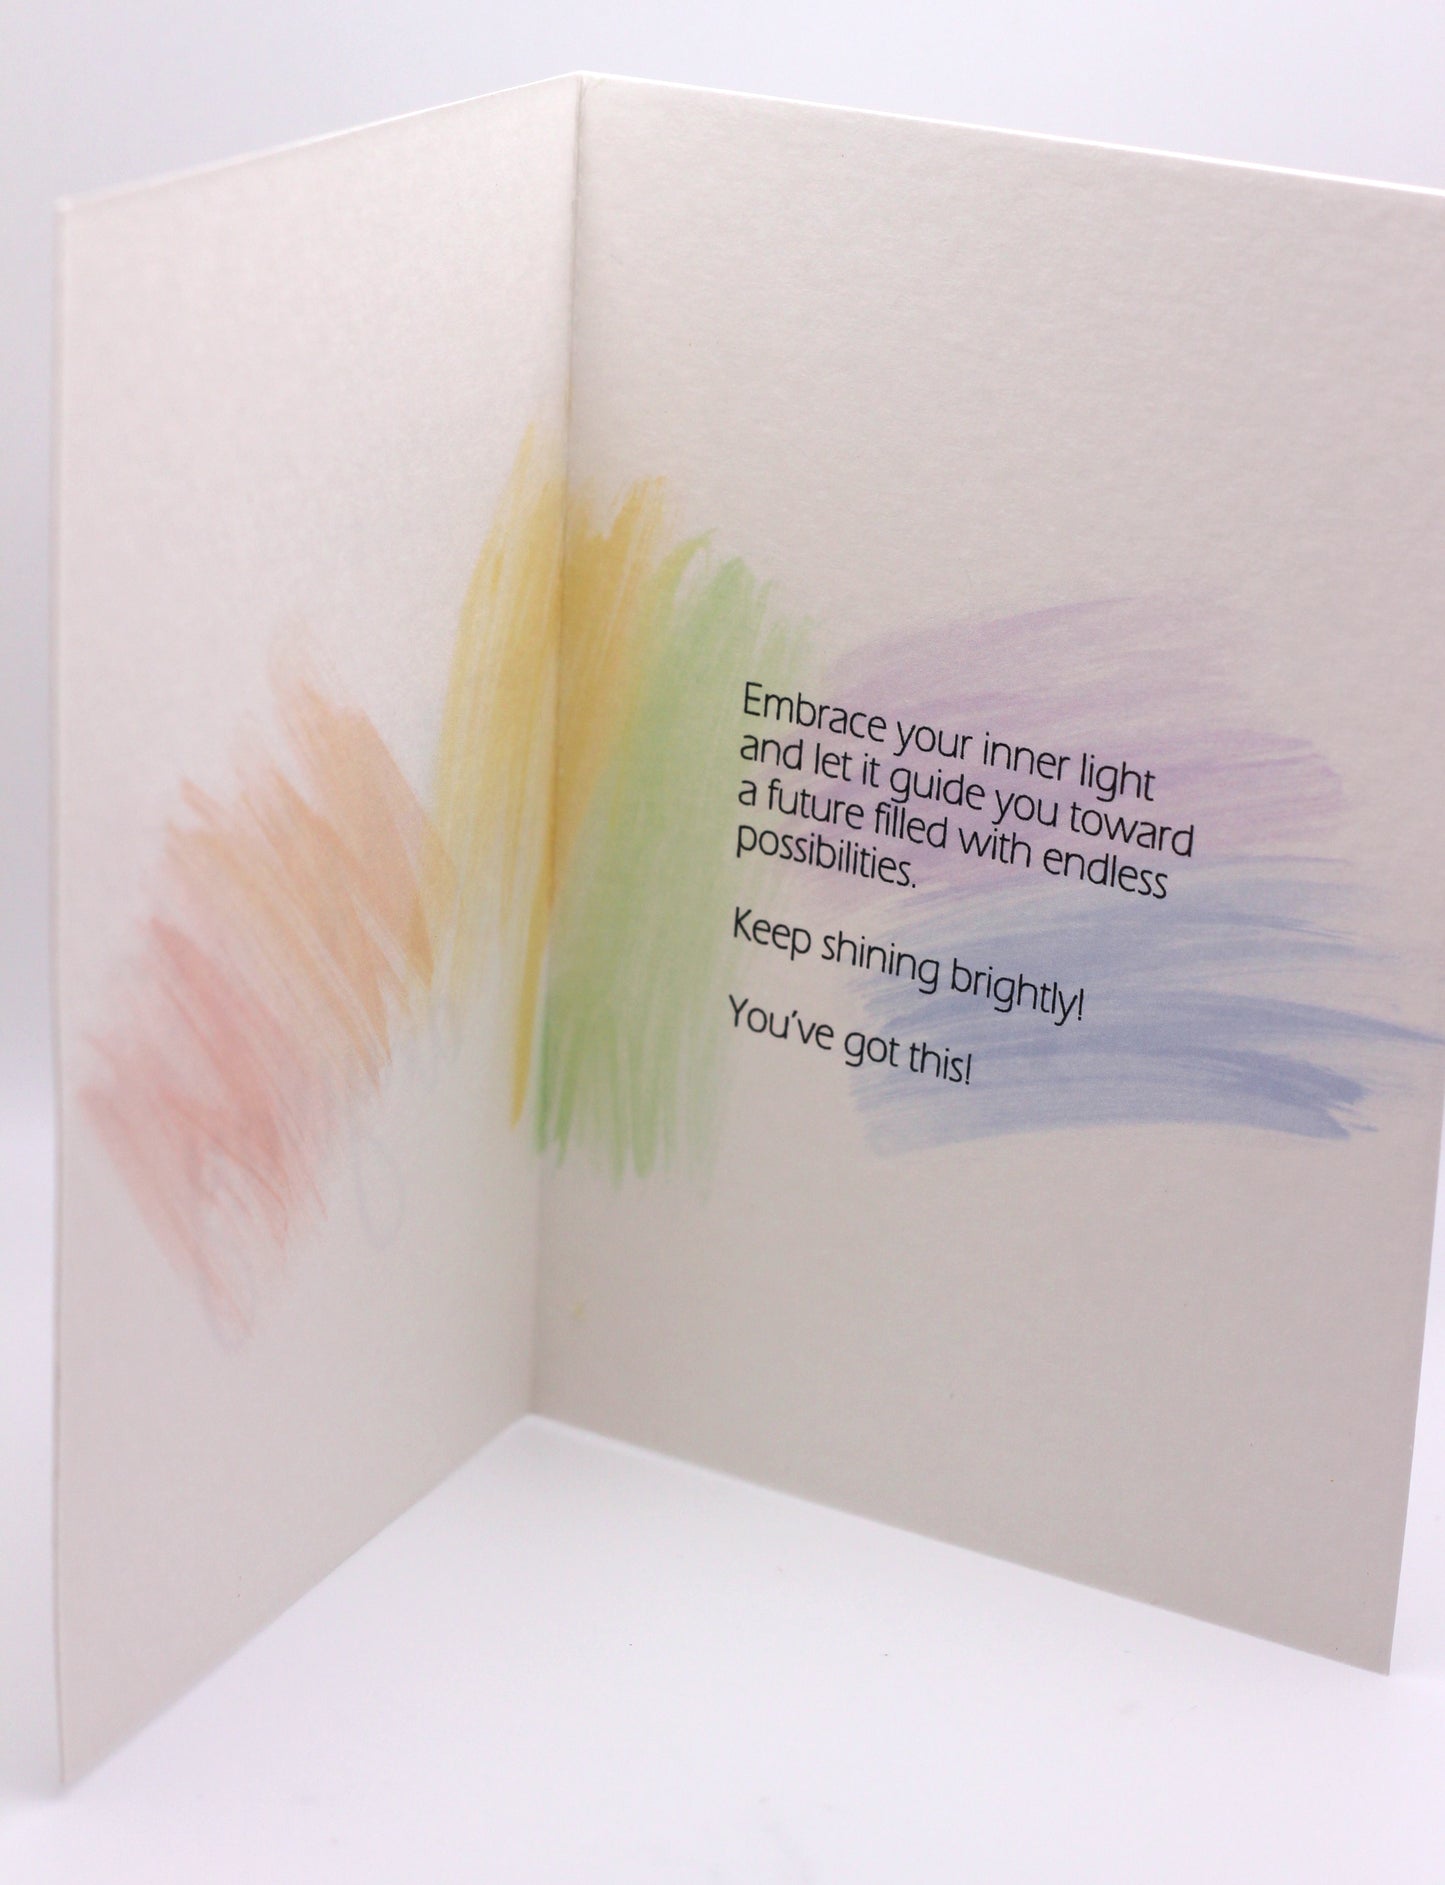 Embrace your inner light
and let it guide you toward
a future filled with endless
possibilities.
Keep shining brightly!
You've got this!